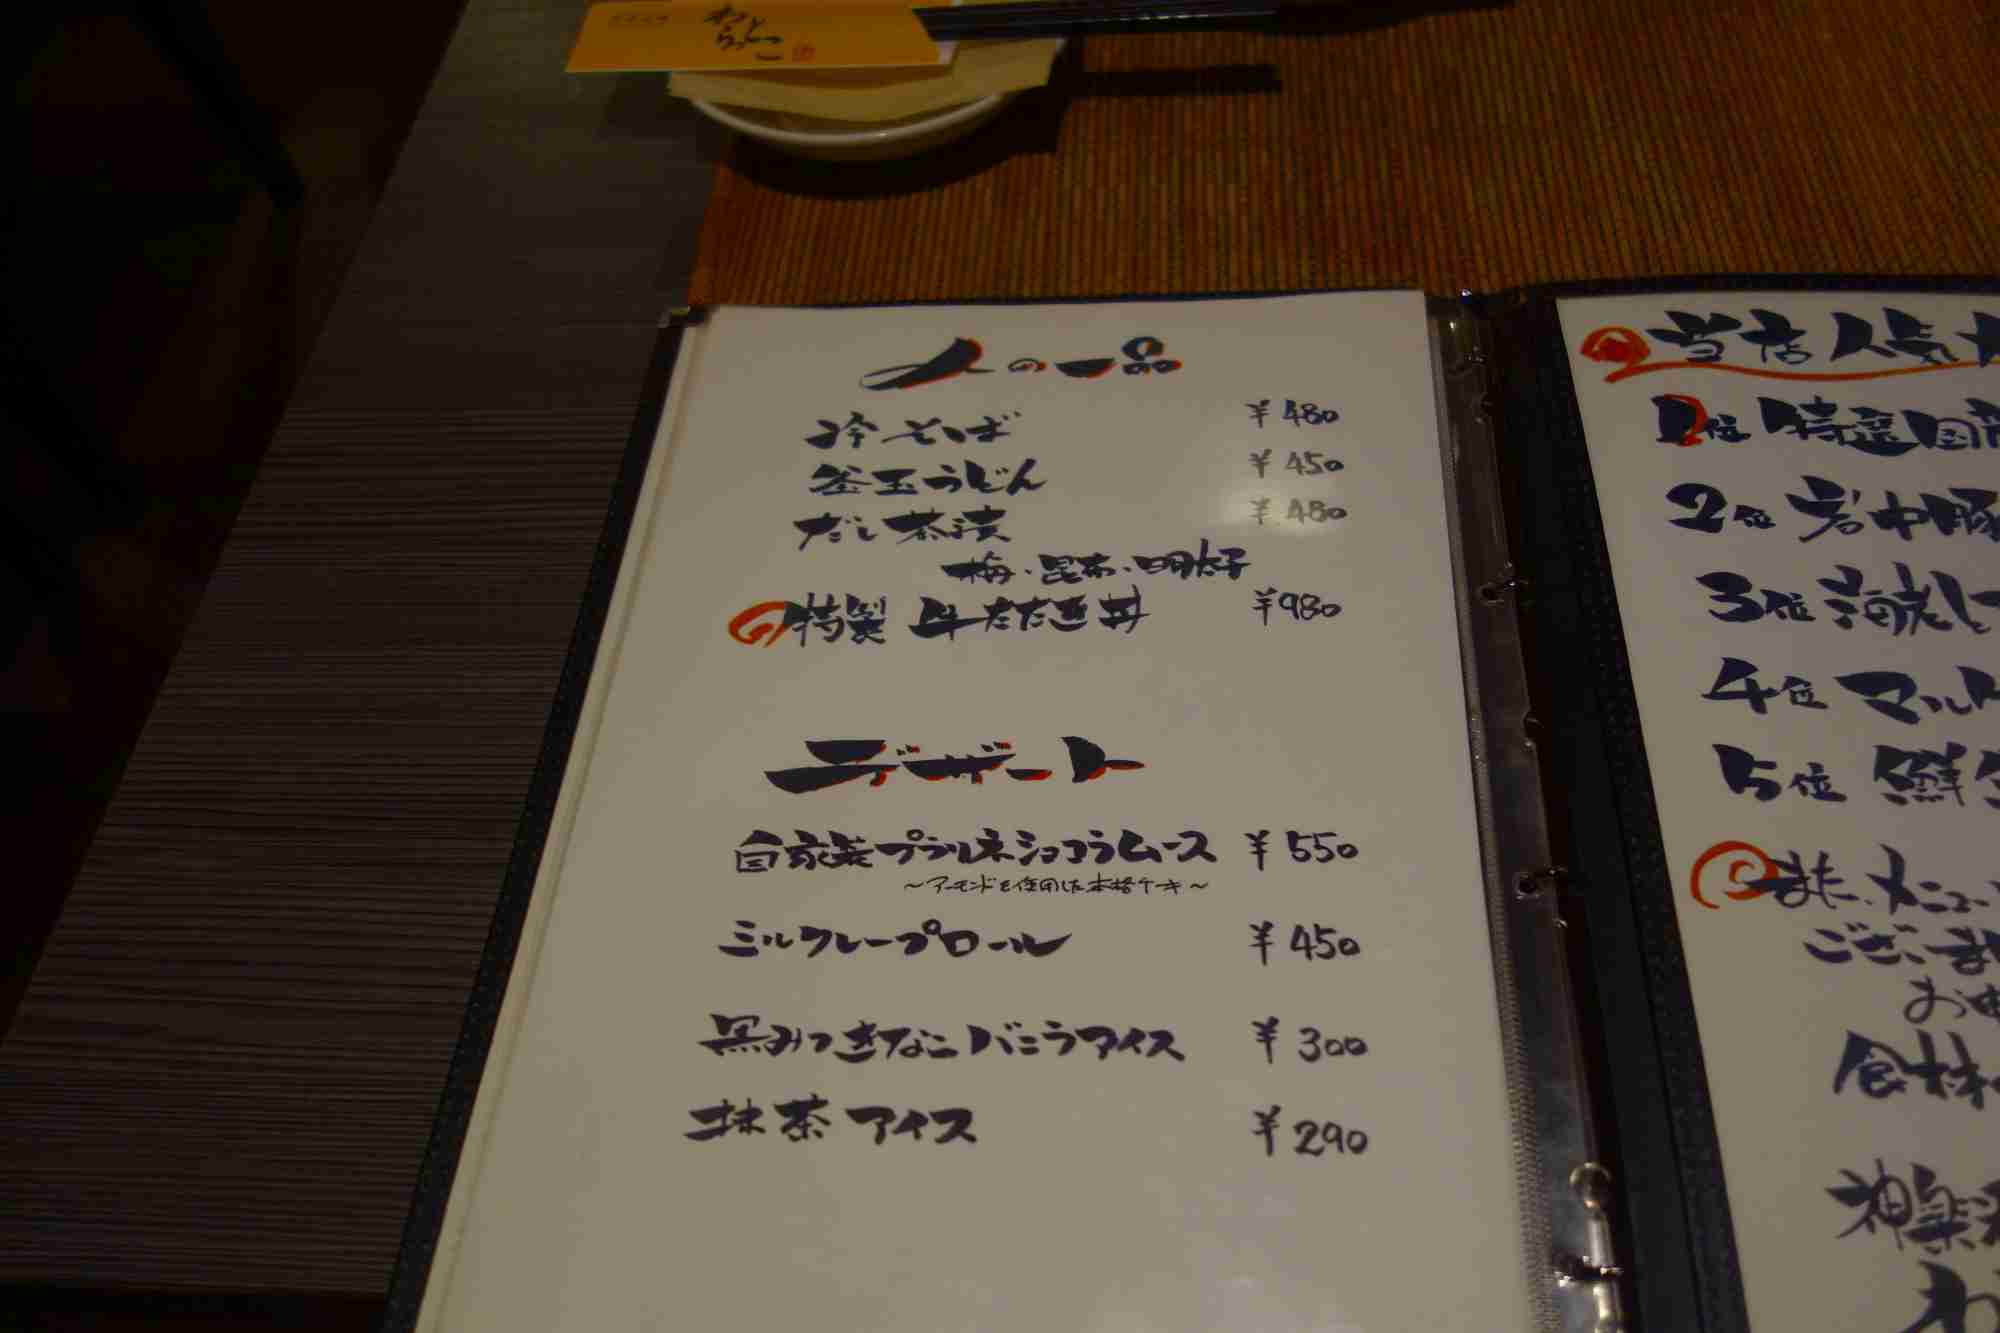 わらっとこ
〆の一品
冷そば ¥480
釜玉うどん ¥450
だし茶漬 ¥480
梅・昆布・明太子
特製 牛たたき丼 ¥980
デザート
自家製プラリネショコラムース ¥550
～アーモンドを使用した本格ケーキ～
ミルクレープロール ¥450
黒みつきなこバニラアイス ¥300
抹茶アイス ¥290
当店人気
1位 特選国産
2位 岩中豚
3位 海老し
4位 マルゲ
5位 鮮
また、メニュー
ござい
お申
食材
神楽
わ